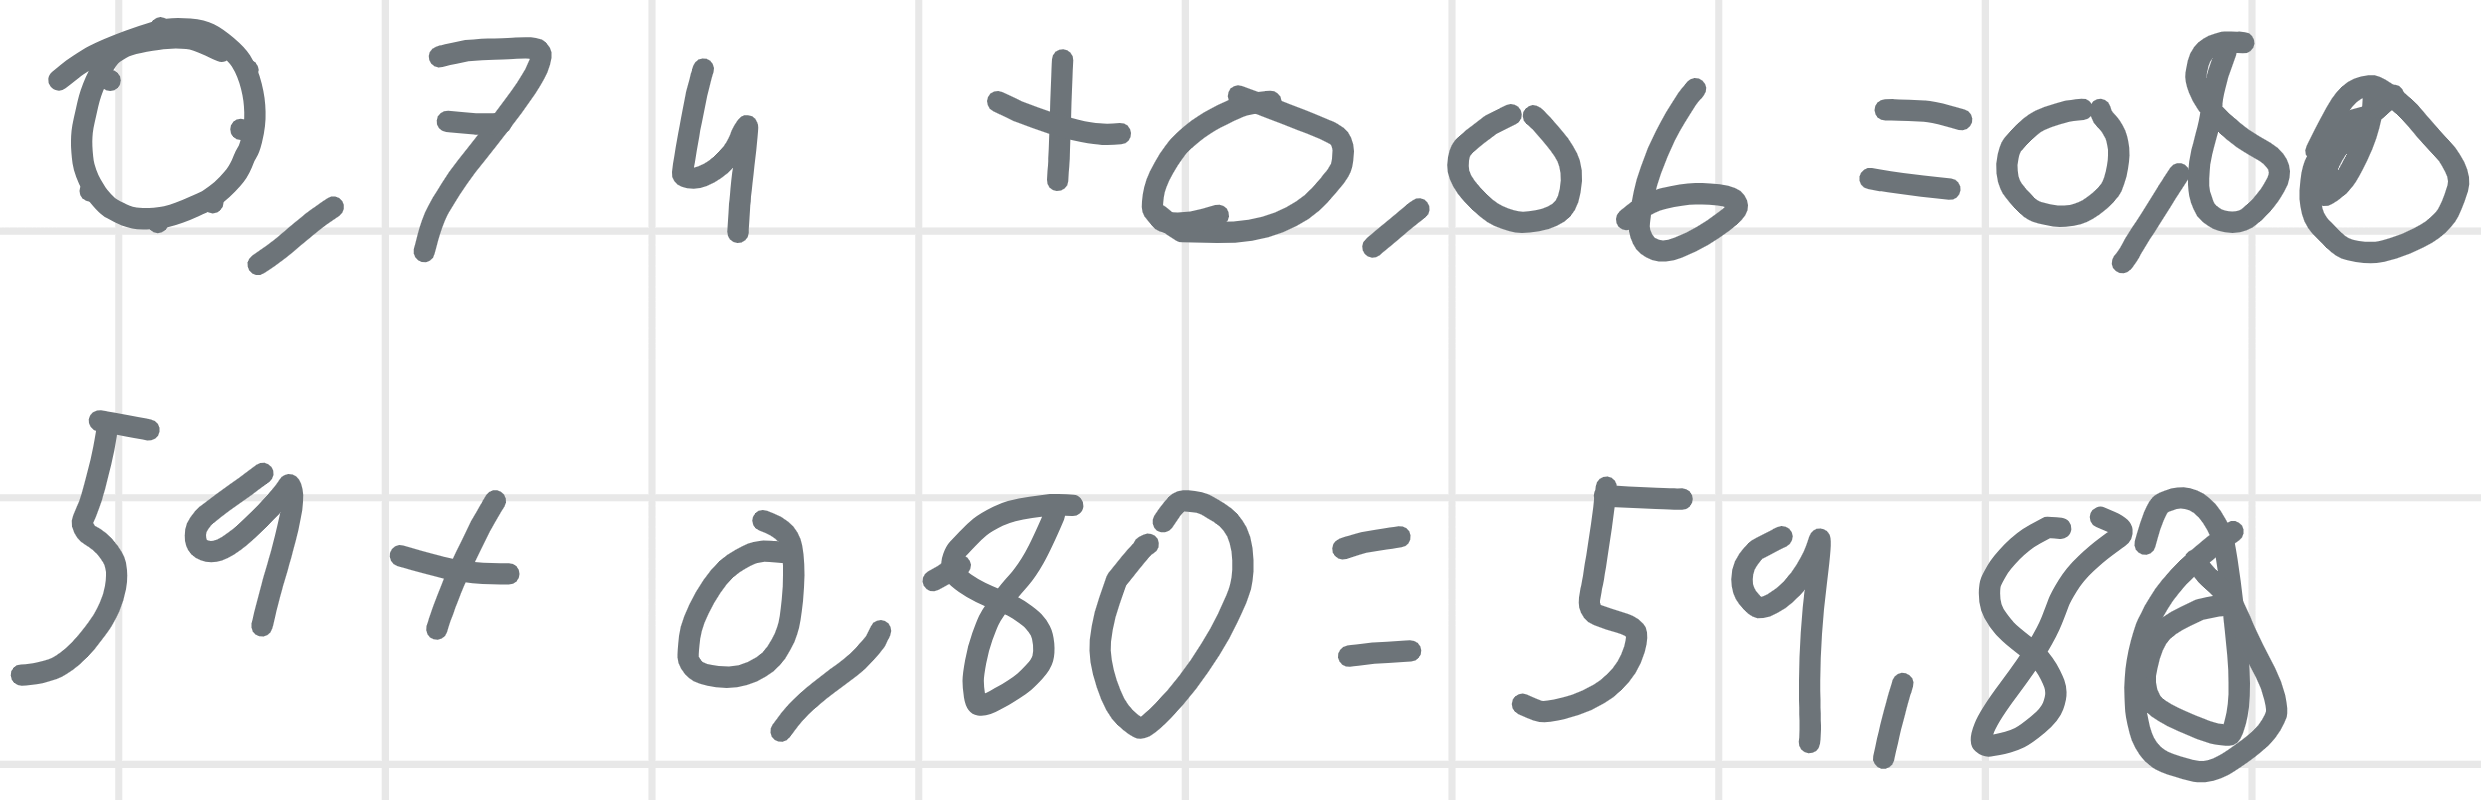 0,74 + 0,06 = 0,80
59 + 0,80 = 59,80